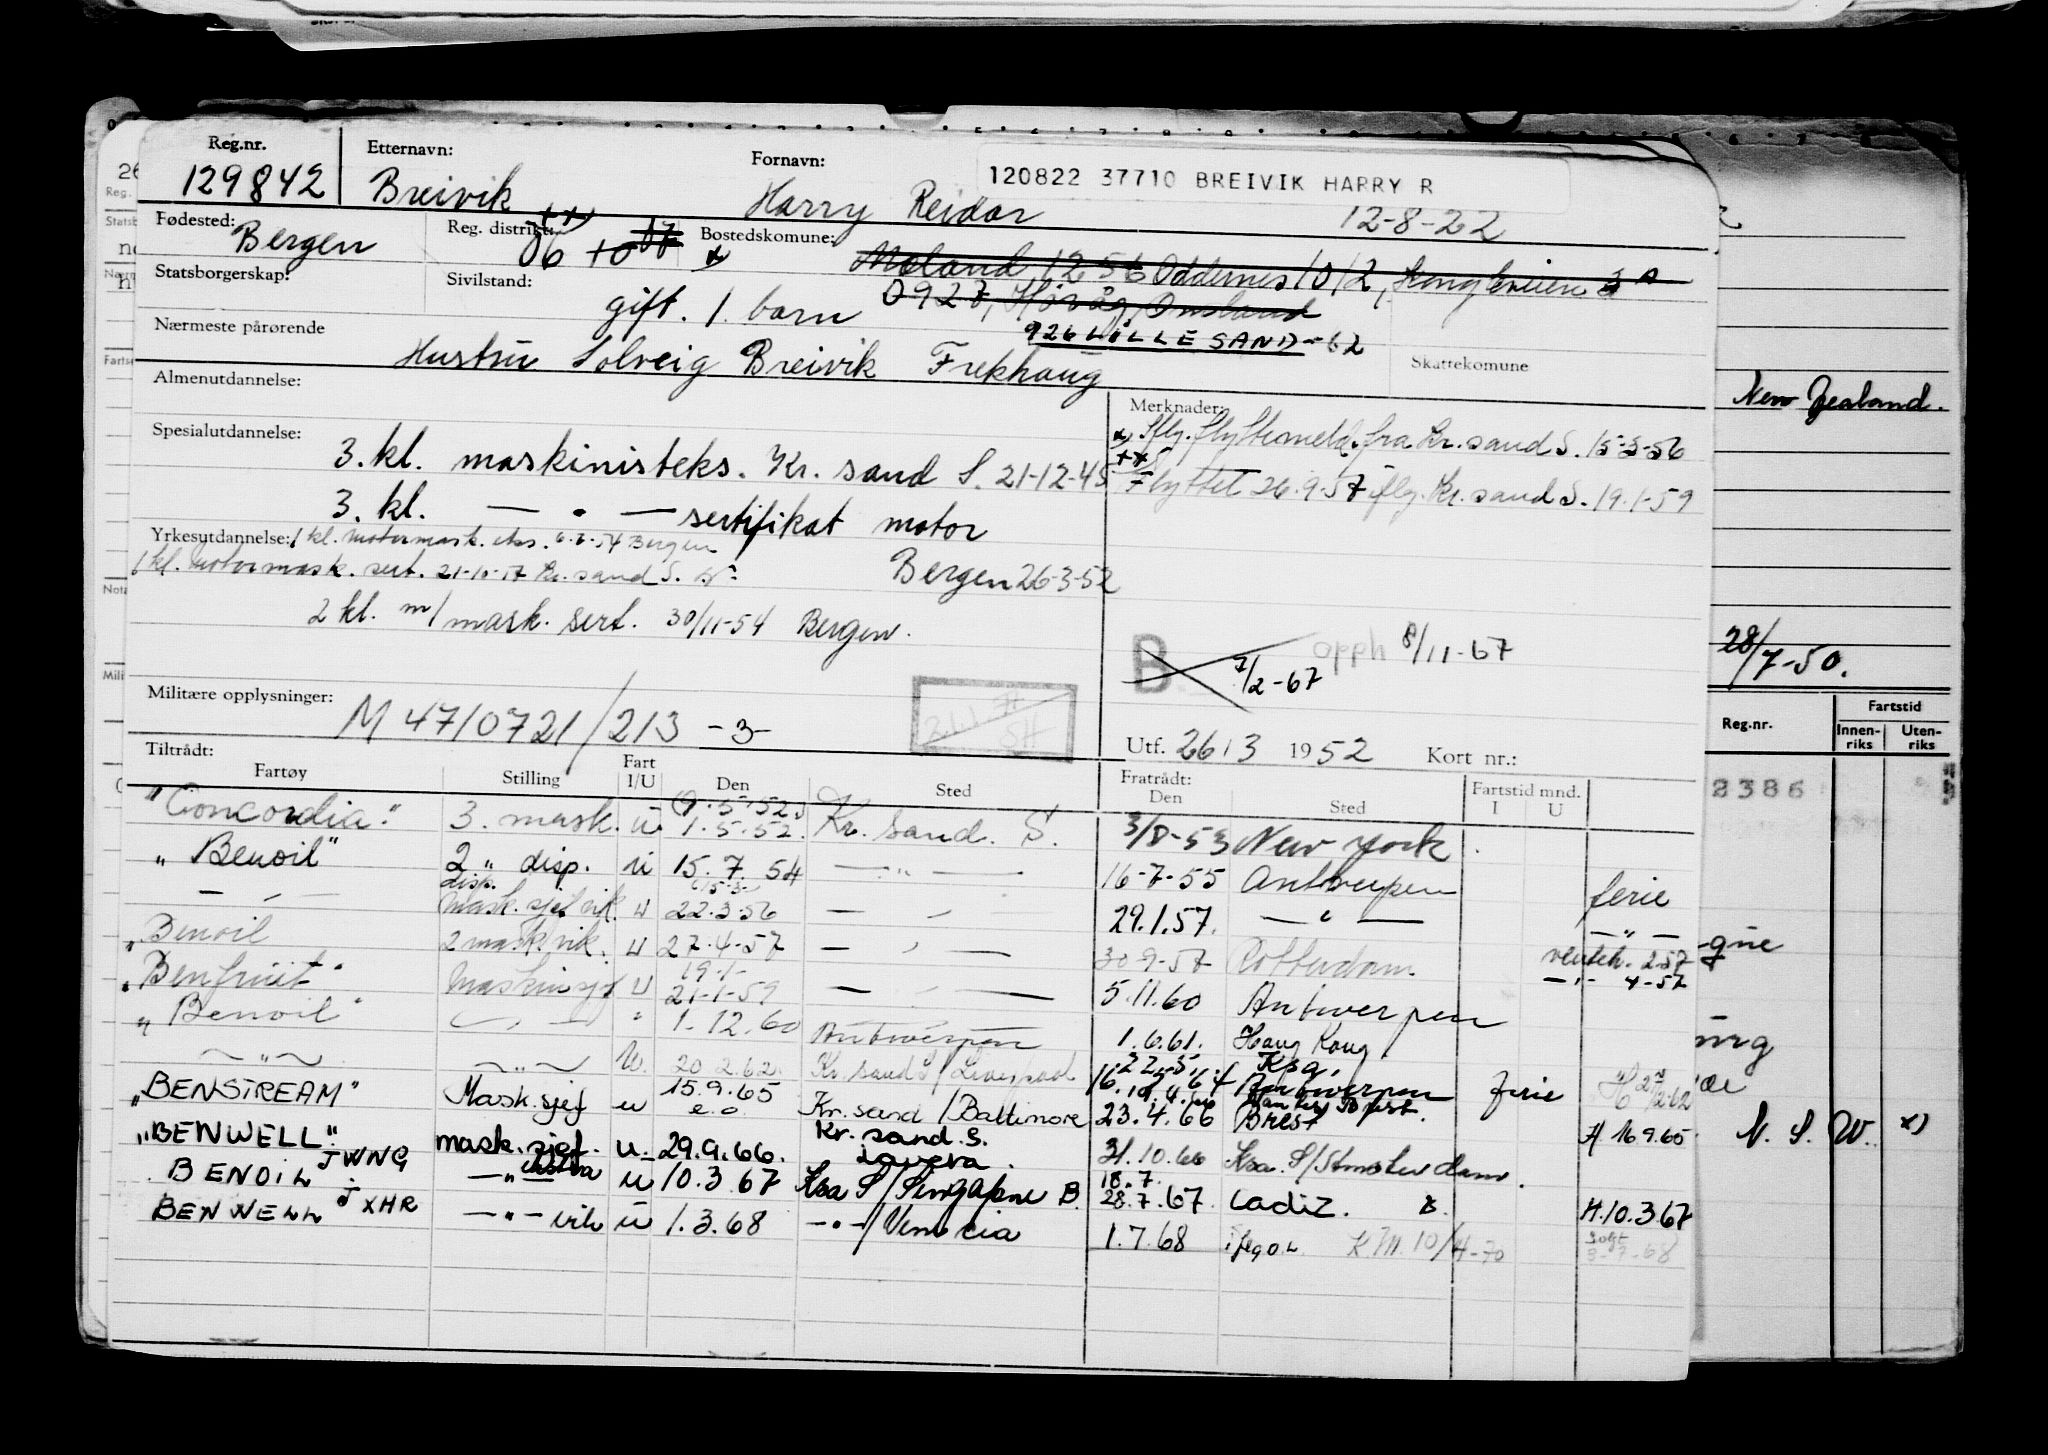 Reg.nr. Etternavn: Fornavn: 120822 37710 BREIVIK HARRY R
129842 Breivik Harry Reidar 12-8-22
Fødested: Reg. distrikt: Bostedskomune:
Bergen 06
Moland 1256 Oddernes 1012,
Statsborgerskap: Sivilstand: gift. 1. barn 0927,
Nærmeste pårørende 926 LILLESAND-62
Hustru Solveig Breivik Frekhaug Skattekomune
Almenutdannelse: Merknader:
flyttemeld. fra Kr.sand S. 15-3-56
Spesialutdannelse: 3. kl. maskinisteks. Kr. sand S. 21-12-45
Flyttet 26.9.57 iflg. Kr.sand S. 19.1-59
3. kl. — " — sertifikat motor
Yrkesutdannelse: 1 kl. motormask. eks. Bergen
1 kl. Motormask. sert. Kr. sand S. Bergen 26-3-52
2 kl. m/mask. sert. 30/11-54 Bergen.
B 7/2-67 opph 8/11-67
Militære opplysninger: M 4710721/213 -3-
Utf. 26/3 1952 Kort nr.:
Tiltrådt: Fratrådt:
Fartøy Stilling Fart I/U Den Sted Den Sted Fartstid mnd. I U
"Concordia." 3. mask. u (9.5.52.) 1.5.52. Kr. Sand. S. 3/8-53 New York
"Benoil" 2 " disp. u 15.7.54 — " — 16-7-55 Antwerpen ferie
— " — disp. Mask.sjef vik. u 22.3.56 — " — 29.1.57. — " — — " —
"Benoil 2 mask. vik. u 27.4-57 — " — 30-9-57 Rotterdam
"Benfruit" Maskinsjef u 19.1- 21-1-59 — " — 5.11.60 Antwerpen — " — 4-57
"Benoil" — " — " 1-12.60 Antwerpen 1.6.61. Hong Kong
— " — — " — U. 20.2.62. Kr. sand S/Liverpool Antwerpen ferie
"BENSTREAM" Mask.sjef u 15.9.65 Kr. sand/Baltimore 23.4.66 Brest H 16.9.65
"BENWELL" JWNG mask.sjef. u 29.9.66. Kr. sand. S. Lavera. 31.10.66 Ksa. S/Amsterdam.
BENOIL JXHR — " — u 10.3.67 Ksa S/Singapore B. 18.7. 28.7.67 Cadiz. H.10.3.67
BENWELL — " — vik u 1.3.68 — " —/Venezia 1.7.68 K.M. 10/4-70 solgt 3-7-68
New Zealand.
28/7-50.
Reg.nr. Fartstid
Innen-riks Uten-riks
2386
N. S. W. x)